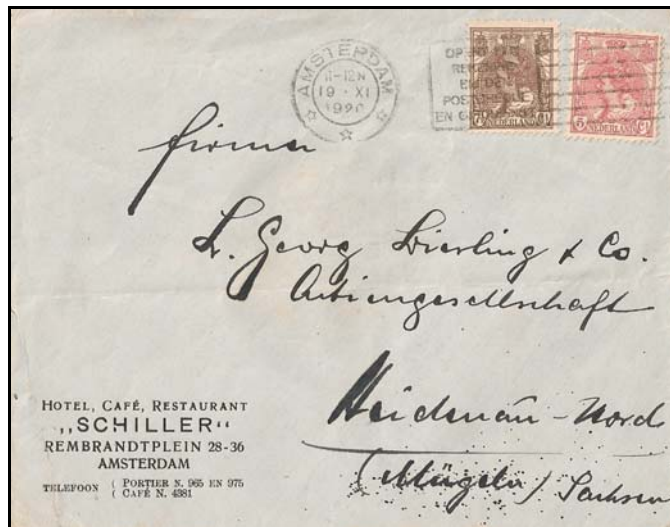 AMSTERDAM
11-12N
19·XI
1920
OP
REKEN
EN DE
POS
EN G
7½ NEDERLAND Ct
5 NEDERLAND Ct
Firma
L. Georg Bierling & Co.
Actiengesellschaft
Heidenau-Nord
(Mügeln) Sachsen
HOTEL, CAFÉ, RESTAURANT
„SCHILLER“
REMBRANDTPLEIN 28-36
AMSTERDAM
TELEFOON ( PORTIER N. 965 EN 975
( CAFÉ N. 4381